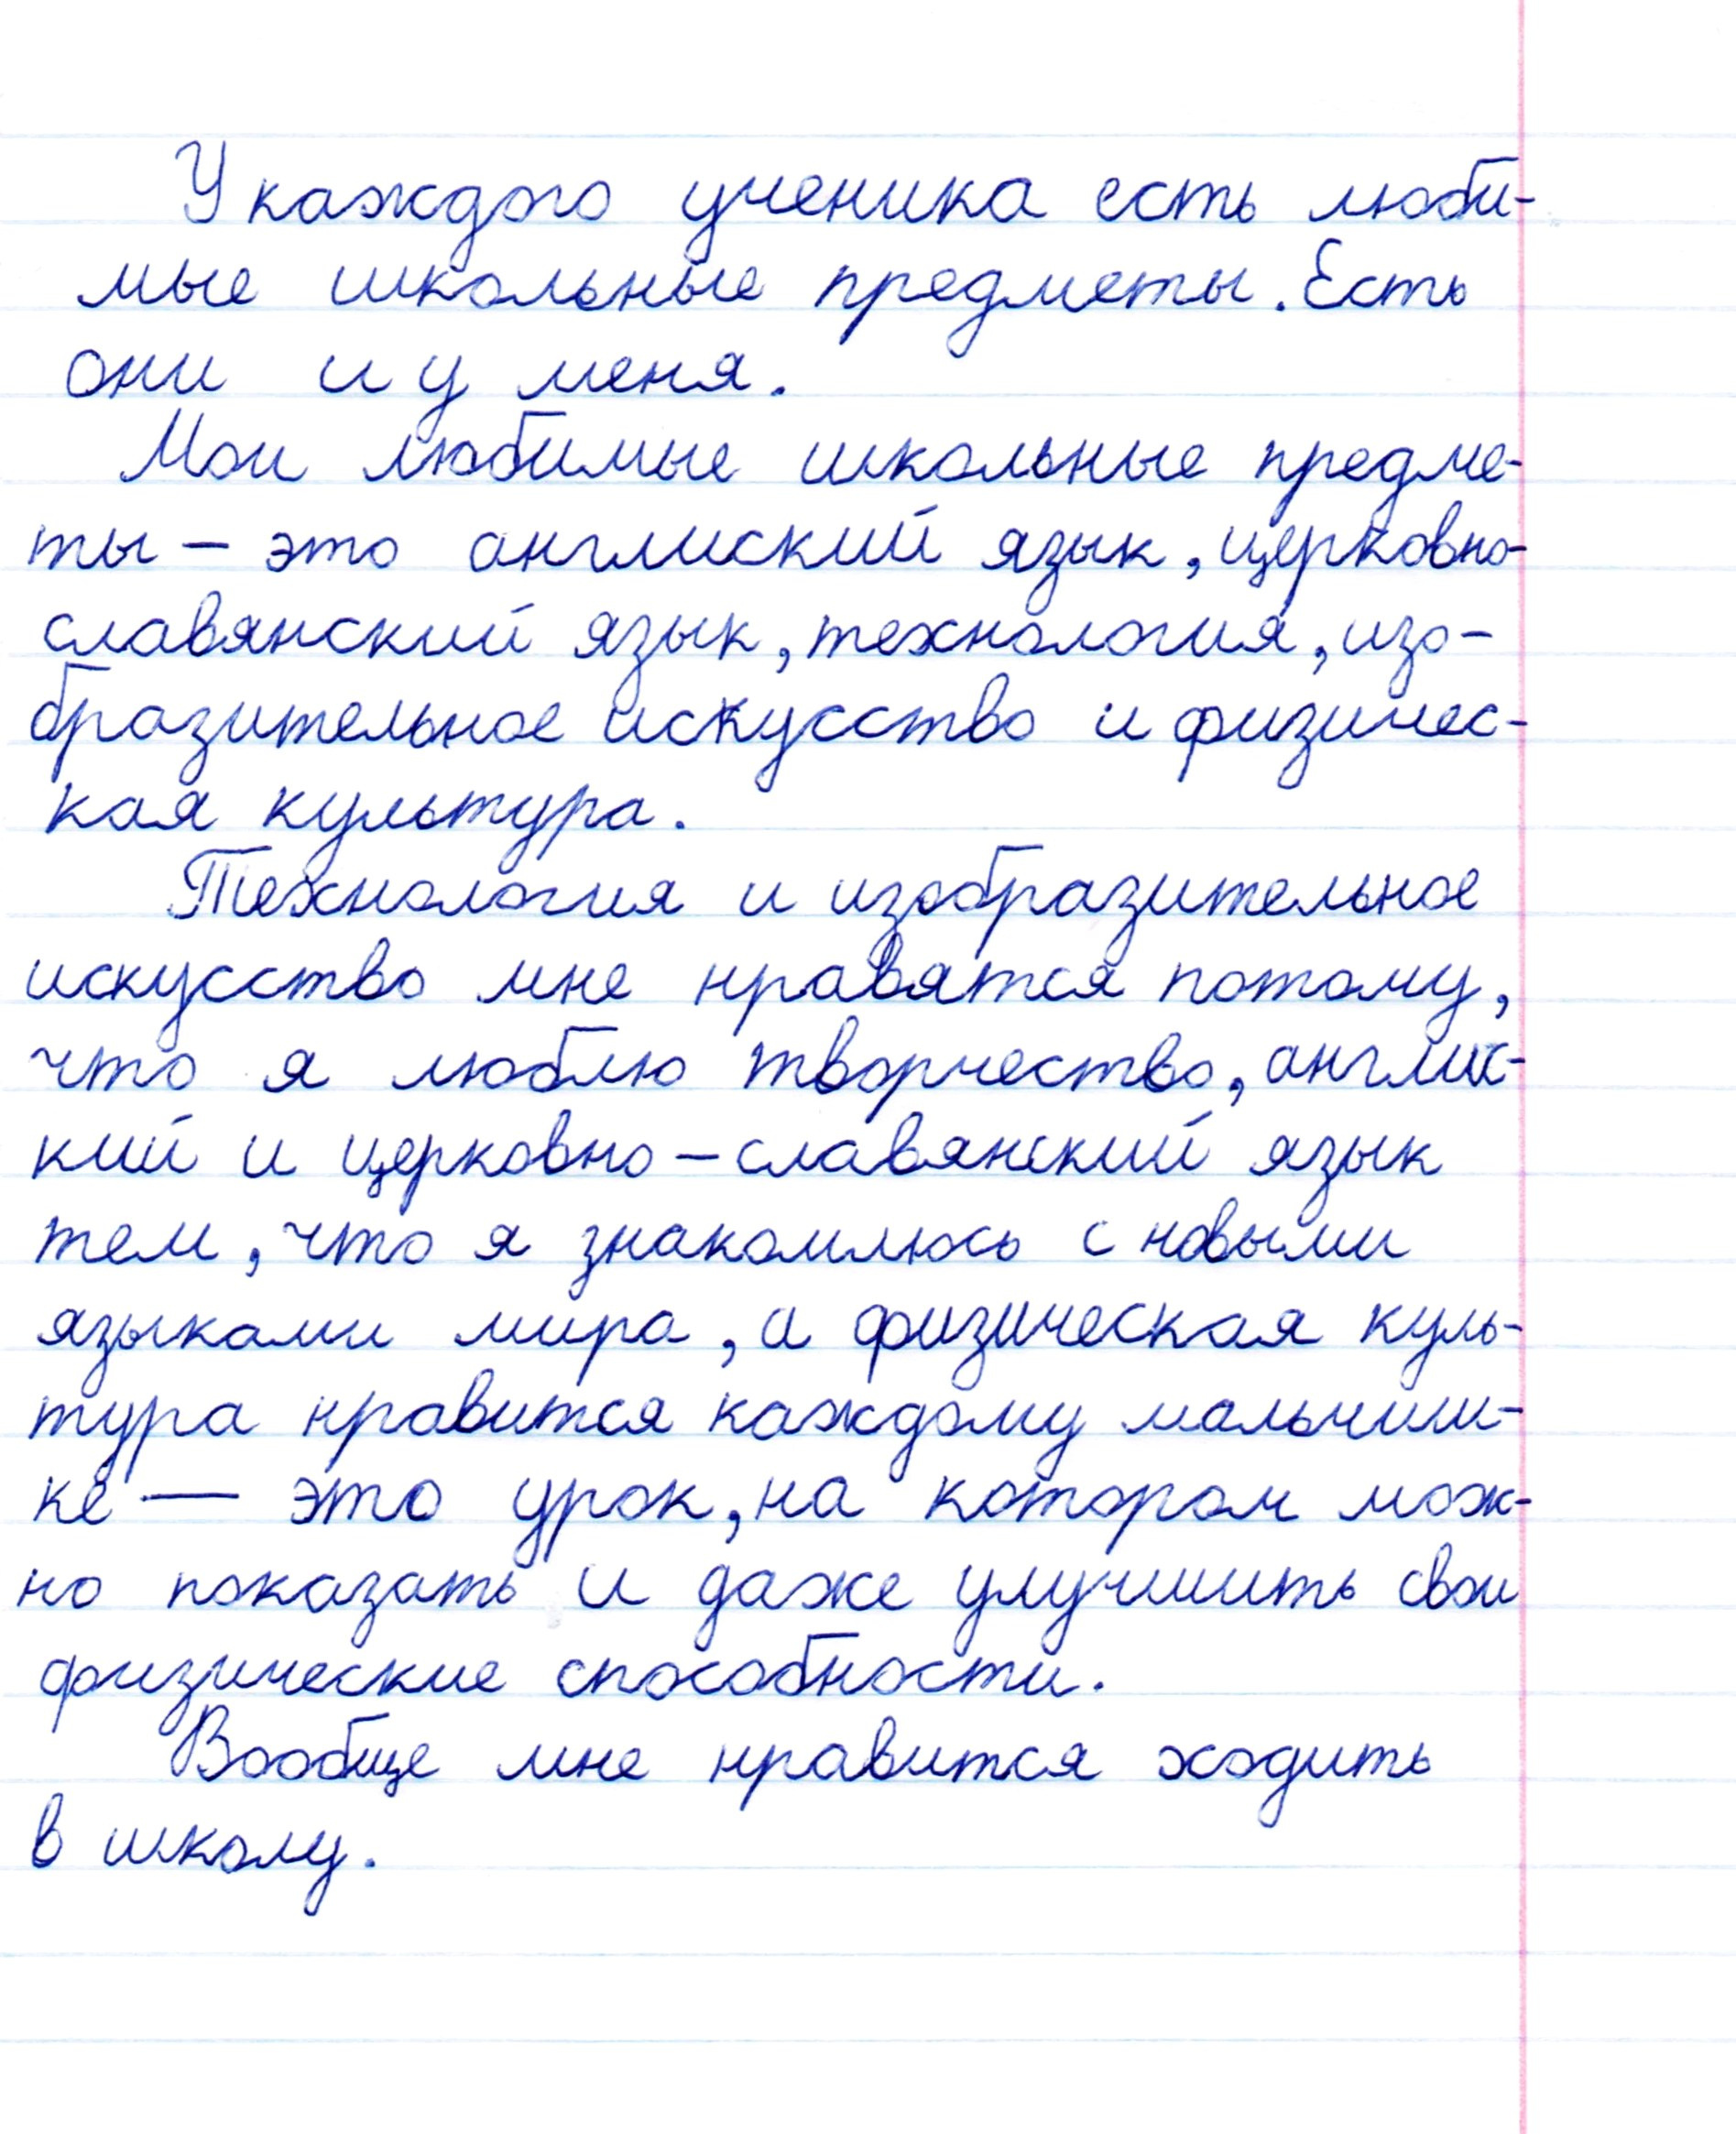 У каждого ученика есть люби-
мые школьные предметы. Есть
они и у меня.
Мои любимые школьные предме-
ты – это англиский язык, церковно-
славянский язык, технология, изо-
бразительное искусство и физичес-
кая культура.
Технология и изобразительное
искусство мне нравятся потому,
что я люблю творчество, англис-
кий и церковно-славянский язык
тем, что я знакомлюсь с новыми
языками мира, а физическая куль-
тура нравится каждому мальчиш-
ке — это урок, на котором мож-
но показать и даже улучшить свои
физические способности.
Вообще мне нравится ходить
в школу.